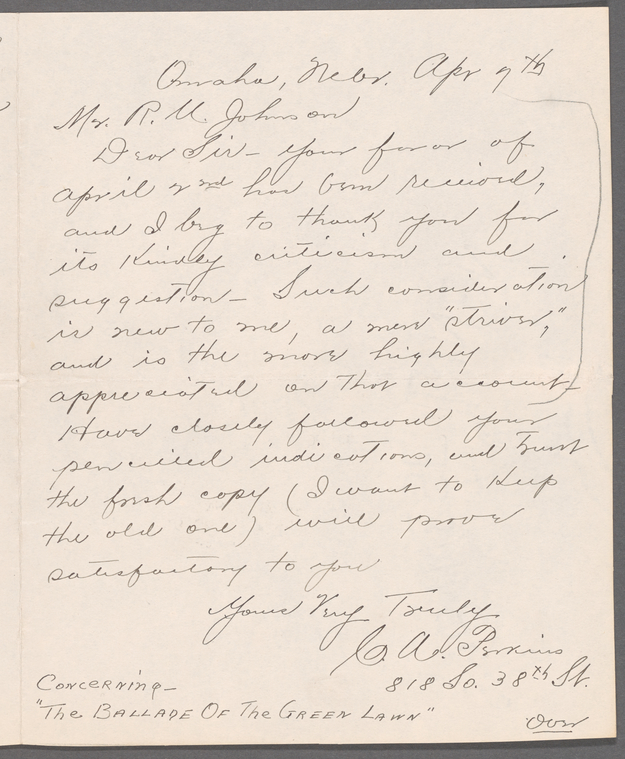 Omaha, Nebr. Apr 9th
Mr. R. U. Johnson
Dear Sir – Your favor of
april 2nd has been received,
and I beg to thank you for
its kindly criticism and
suggestion – Such consideration
is new to me, a mere "striver,"
and is the more highly
appreciated on that account –
Have closely followed your
pencilled indications, and trust
the fresh copy (I want to keep
the old one) will prove
satisfactory to you
Yours Very Truly
C. A. Perkins
818 So. 38th St.
Concerning –
"The Ballade Of The Green Lawn"
Over